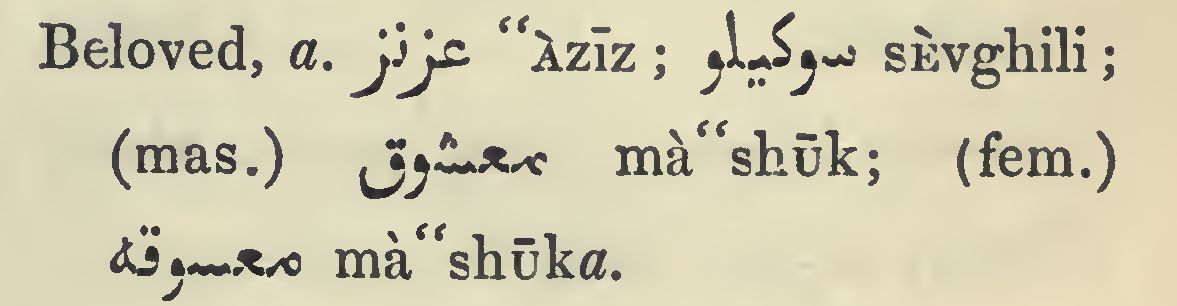 Beloved, a. عزيز “Àzīz ; سوكيلو sÈvghili ;
(mas.) معشوق mà“shūk; (fem.)
معسوقه mà“shūka.